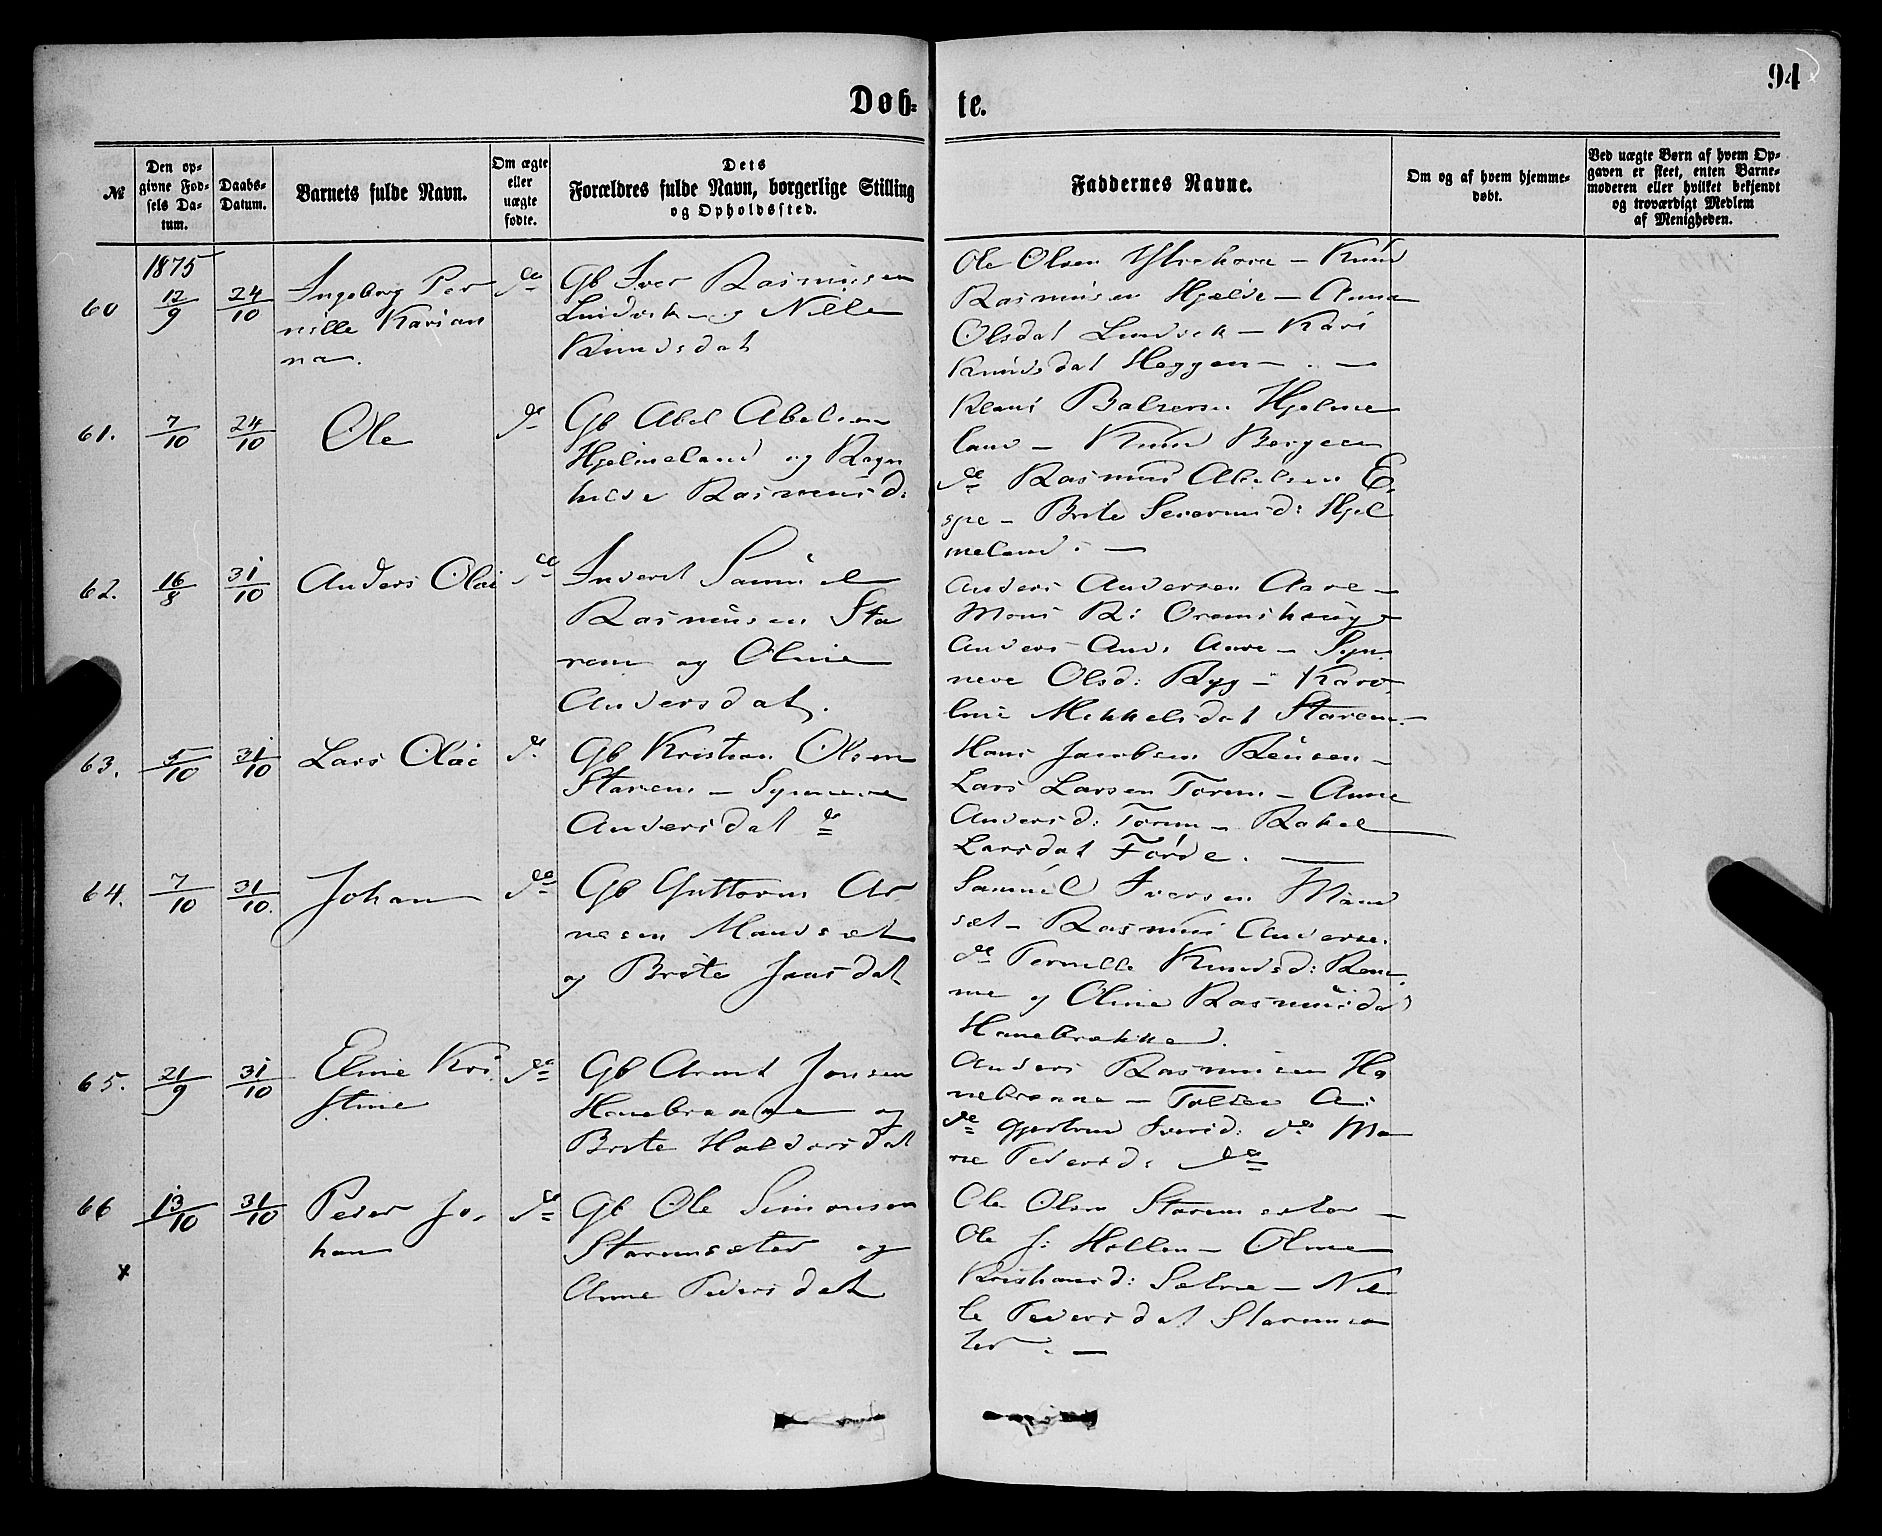 94
Døb-
te.
№
Den op-
givne Fød-
sels Da-
tum.
Daabs-
Datum.
Barnets fulde Navn.
Om ægte
eller
uægte
fødte.
Dets
Forældres fulde Navn, borgerlige Stilling
og Opholdssted.
Faddernes Navne.
Om og af hvem hjemme-
døbt.
Ved uægte Børn af hvem Op-
gaven er skeet, enten Barne-
moderen eller hvilket bekjendt
og troværdigt Medlem
af Menigheden.
1875
60
12/9
24/10
Ingeborg Per
nille Karian
na.
do
Gb Iver Rasmusen
Lundvik og Nille
Knudsdat
Ole Olsen Ytrehorn - Knud
Rasmusen Hjelde - Anna
Olsdat Lundvik - Kari
Knudsdat Heggen -
61.
7/10
24/10
Ole
do
Gb Abel Abelsen
Hjelmeland og Ragn
hilde Rasmusd:
Klaus Balzersen Hjelme
land - Knud Bergeen
do Rasmus Abelsen E-
spe - Brite Severinsd: Hjel
meland. -
62.
16/8
31/10
Anders Olai
do
Inderst Samuel
Rasmusen Sta
rem og Oline
Andersdat.
Anders Andersen Aare -
Mons R: Oremshaug -
Anders And: Aare - Syn
neve Olsd: Ryg - Karo
line Mikkelsdat Starem -
63.
5/10
31/10
Lars Olai
do
Gb Kristian Olsen
Starem - Synneve
Andersdat do
Hans Jacobsen Reusen -
Lars Larsen Torum - Anne
Andersd: Torum - Rakel
Larsdat Førde. -
64.
7/10
31/10.
Johan
do
Gb Guttorm Ar
nesen Maudsæt
og Brite Jonsdat
Samuel Iversen Maud
sæt - Rasmus Anderse.
do Pernille Knudsd: Ren-
me og Oline Rasmusdat
Hanebrekke.
65.
21/9
31/10
Eline Kri
stine
do
Gb Arnt Jonsen
Hanebrekke og
Brite Haldorsdat
Anders Rasmusen Ha
nebrekke - A:
do Gjertrud Iversd: do Ma
rie Pedersd: do
66
13/10
31/10
Peder Jo-
han
do
Gb Ole Simonsen
Staremsæter og
Anne Pedersdat
Ole Olsen Staremsæter -
Ole J: Hollen - Oline
Kristiansd: Sætre - Nil
le Pedersdat Staremsæ
ter. -
x